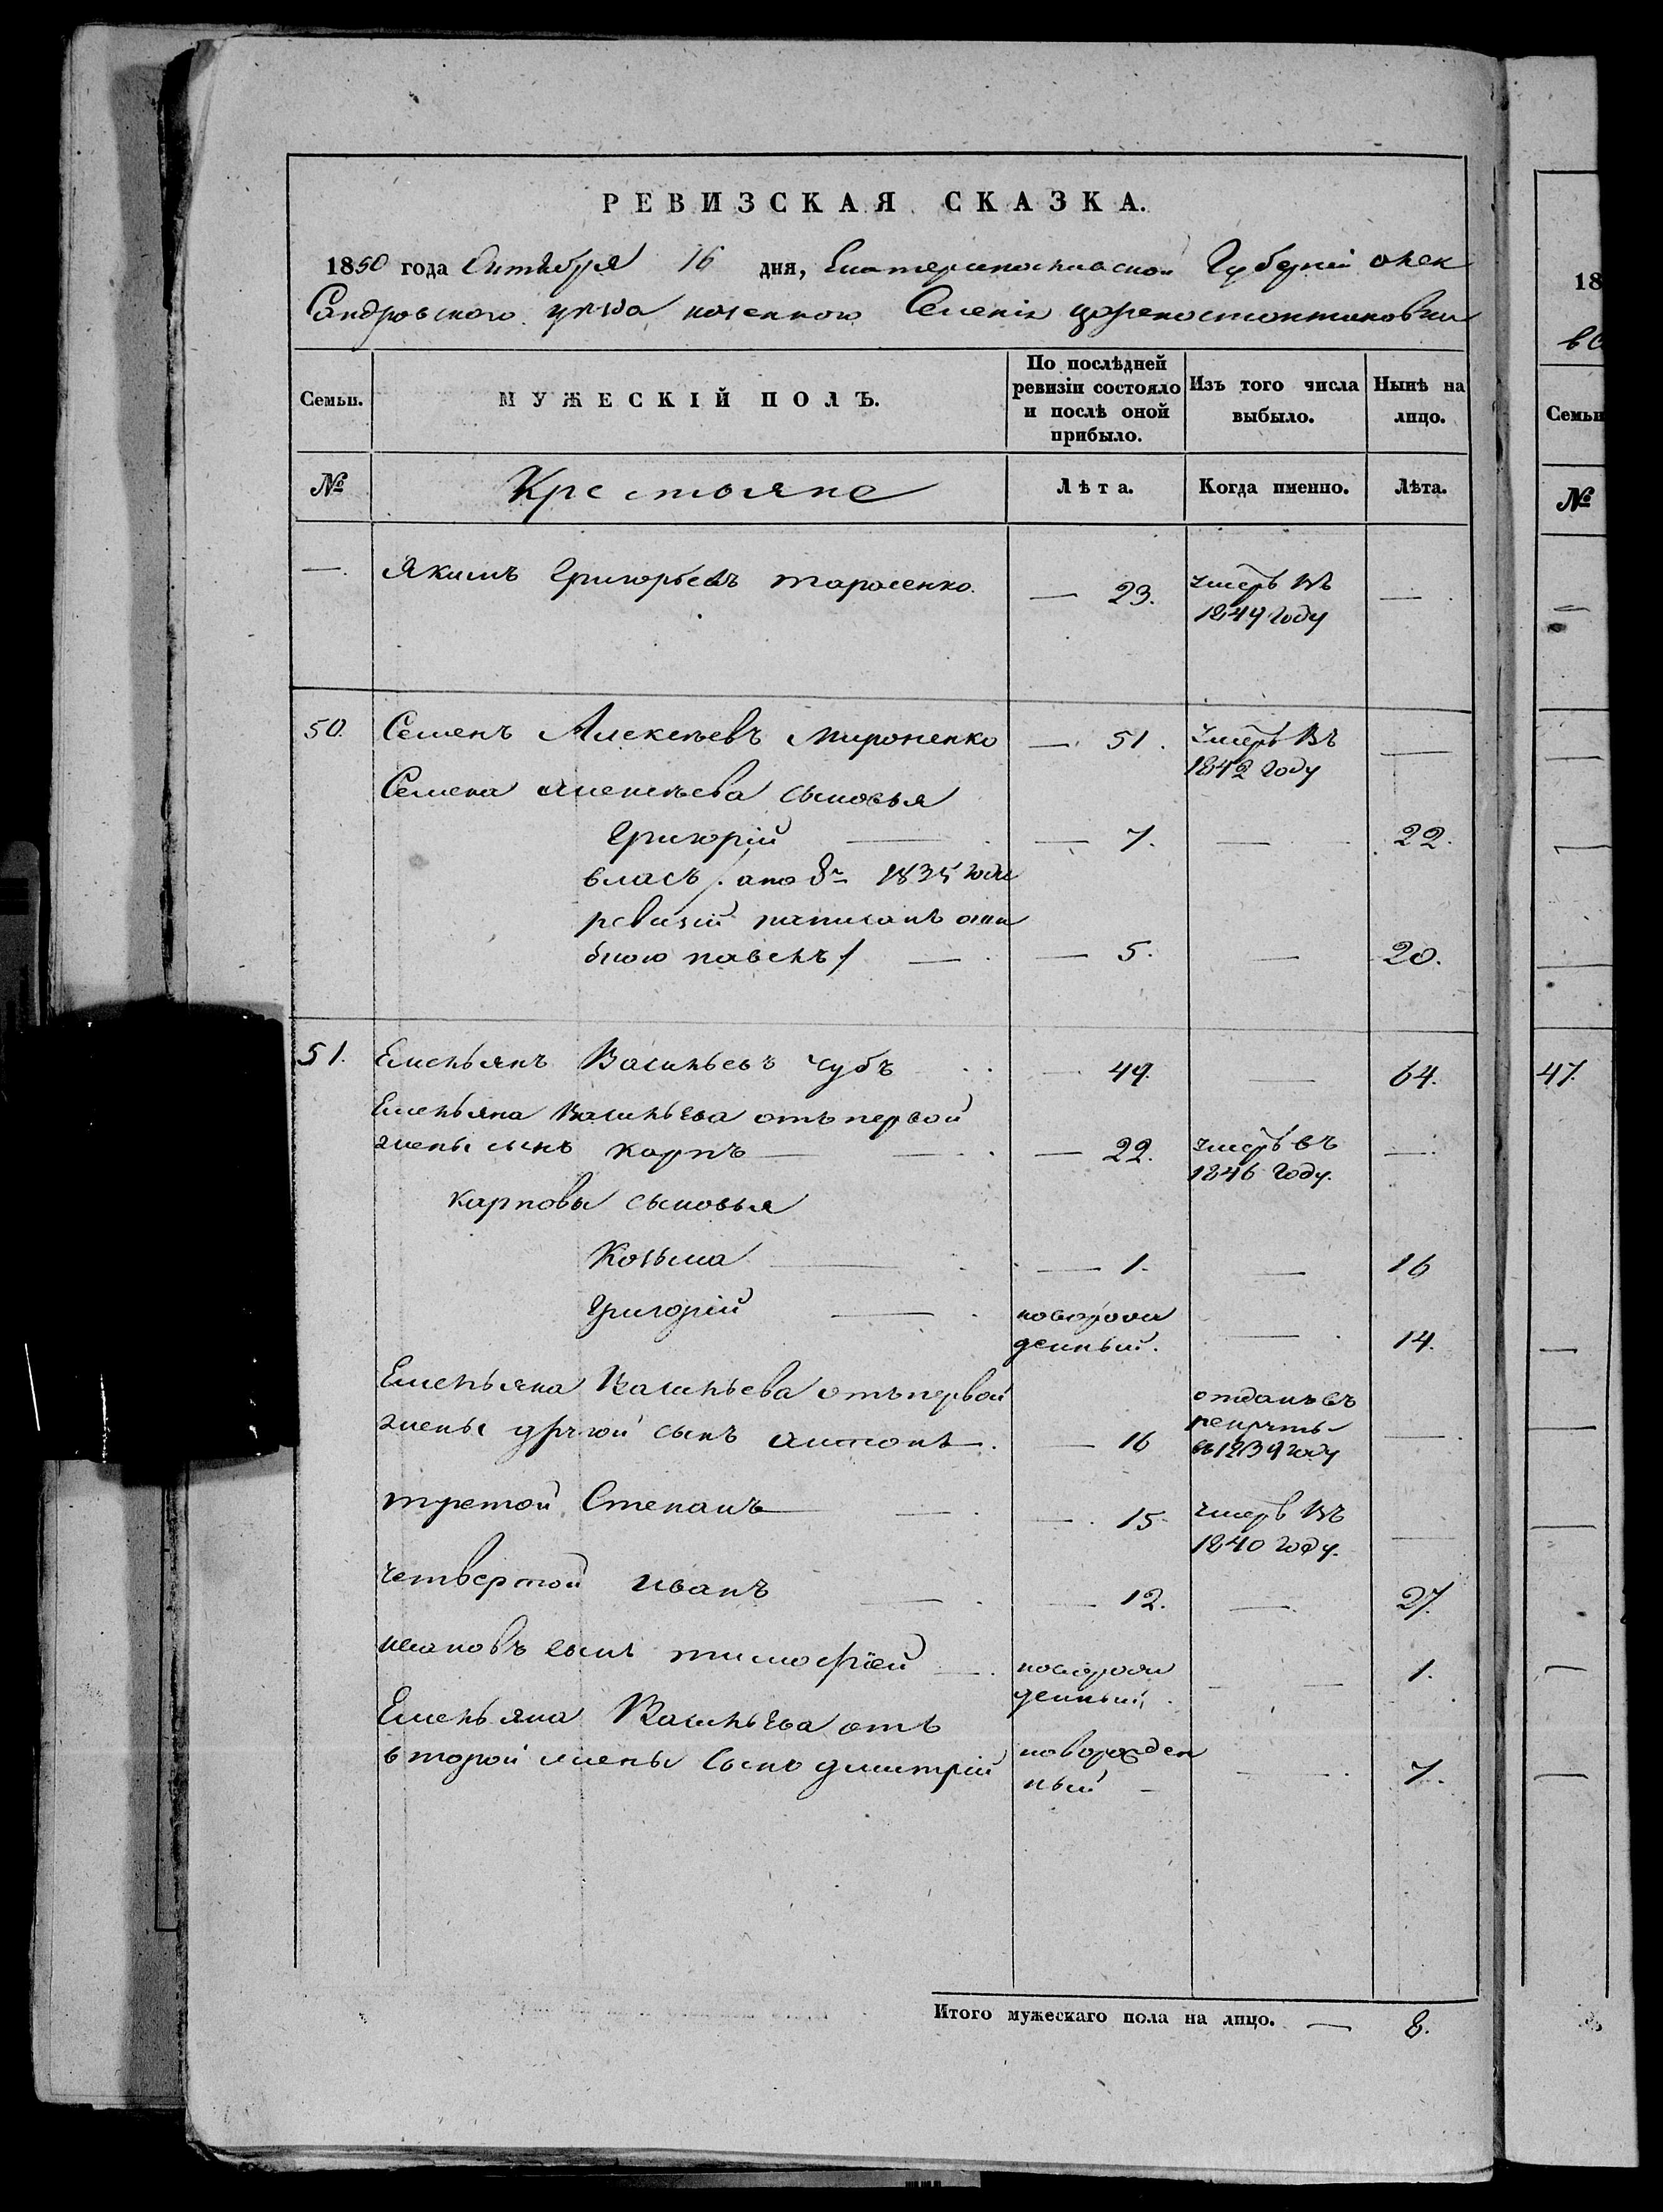 РЕВИЗСКАЯ СКАЗКА.
1850 года Октября 16 дня, Екатеринославской Губерніи Алек
Сандровского уезда казенного Селенія цареконстантиновки
Семьи. МУЖЕСКІЙ ПОЛЪ. По послѣдней ревизіи состояло и послѣ оной прибыло. Изъ того числа выбыло. Нынѣ на лицо.
№ Крестьяне Лѣта. Когда именно. Лѣта.
—. Якимъ Григорьевъ тарасенко. — 23. умеръ въ —.
1849 году
50. Семенъ Алексеевъ Мироненко — 51. умеръ въ —
1842 году
Семена алексеева сыновья
Григорій — — 7. — 22.
власъ /. а по 8й 1835 года
ревизіи написанъ оши
бкою павелъ / — — 5. — 20.
51. Емельянъ Васильевъ чубъ — 49. — 64.
Емельяна Васильева отъ первой
жены сынъ карпъ — — 22. умеръ въ —
1846 году.
карповы сыновья
Козьма — — 1. — 16
Григорій — новорож
денный. — 14.
Емельяна Васильева отъ первой отданъ въ
жены другой сынъ антонъ — 16 рекруты —
въ 1839 году
третой Степанъ — — 15 умеръ въ —
1840 году.
четвертой иванъ — — 12. — 27.
ивановъ сынъ тимофѣй — новорож
денный. — 1.
Емельяна Васильева отъ
второй жены сынъ дмитрій новорожден
ный — — 7.
Итого мужескаго пола на лицо. — 8.
18
Семьи
№
47.